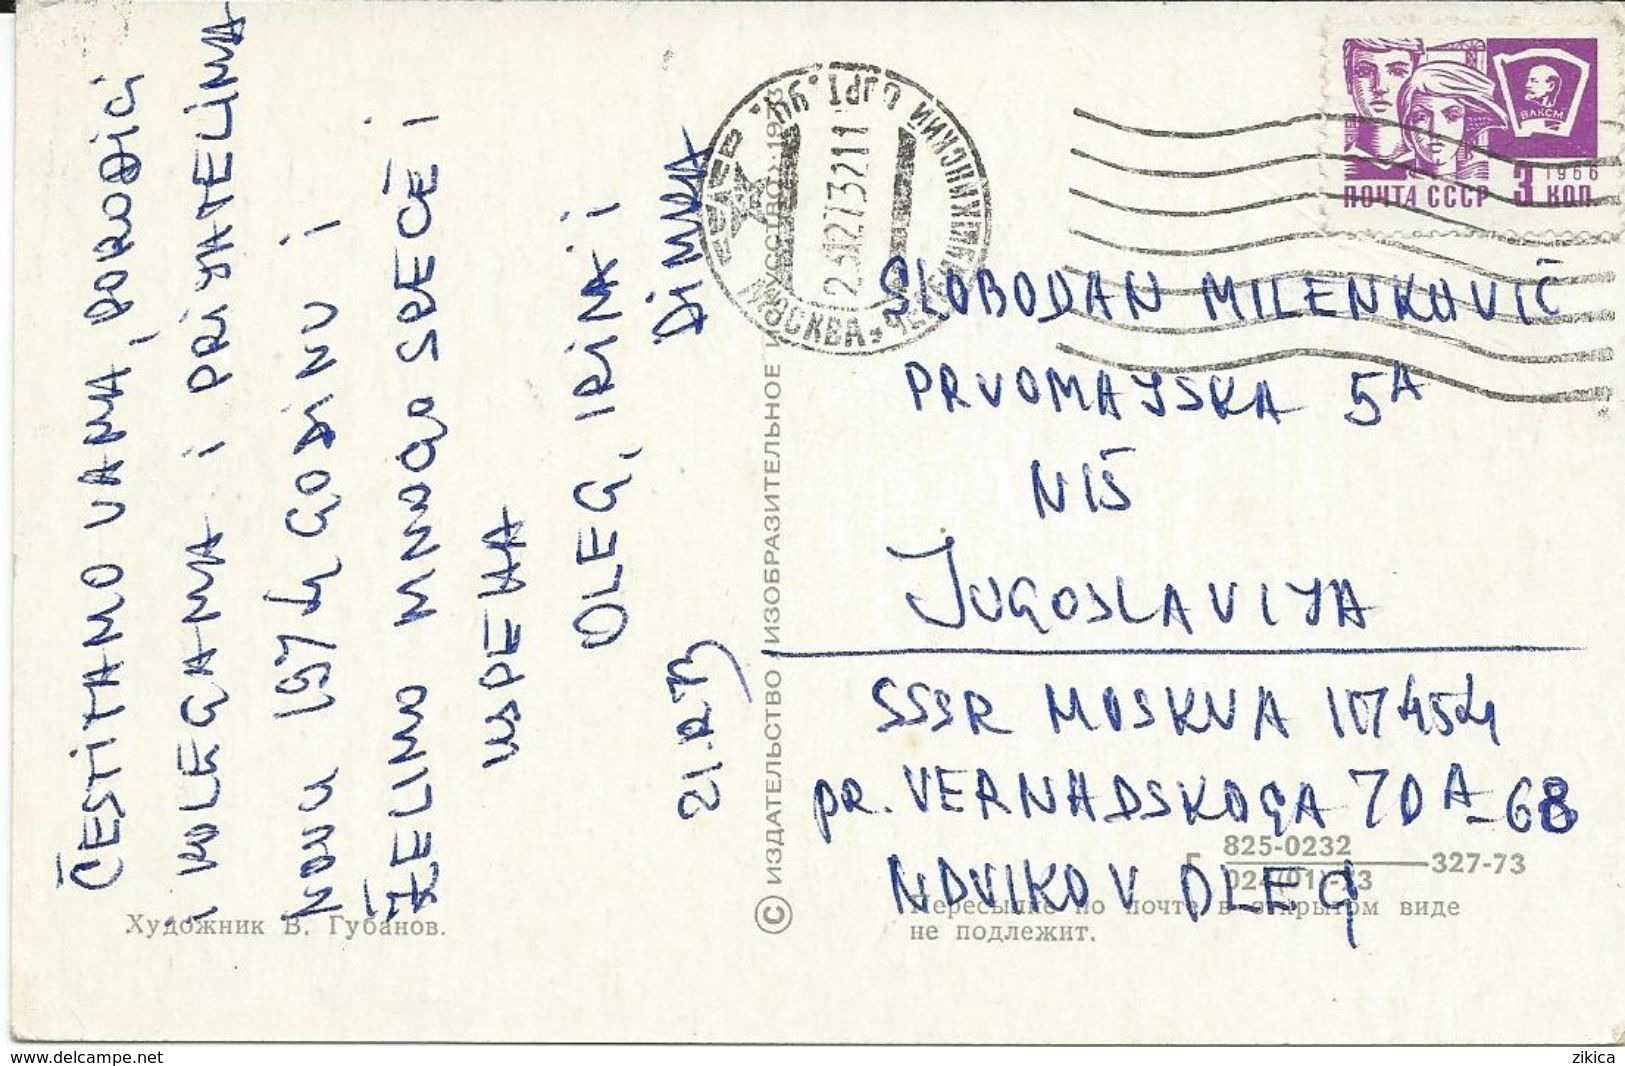 ČESTITAMO VAMA, PORODICI
I KOLEGAMA I PRIJATELIMA
NOVU 1974 GODINU I
ŽELIMO MNOGO SREČE I
USPEHA
OLEG, IRINA I
DIMKA
21.12.73
Художник В. Губанов.
© ИЗДАТЕЛЬСТВО «ИЗОБРАЗИТЕЛЬНОЕ ИСКУССТВО». 1973
МОСКВА
ПОЧТА СССР 3 КОП
1966
ВЛКСМ
SLOBODAN MILENKOVIĆ
PRVOMAJSKA 5A
NIŠ
JUGOSLAVIJA
SSSR MOSKVA 117454
PR. VERNADSKOGA 70A-68
NOVIKOV OLEG
825-0232
024(01)-73
327-73
Пересылке по почте в открытом виде
не подлежит.
www.delcampe.net
zikica